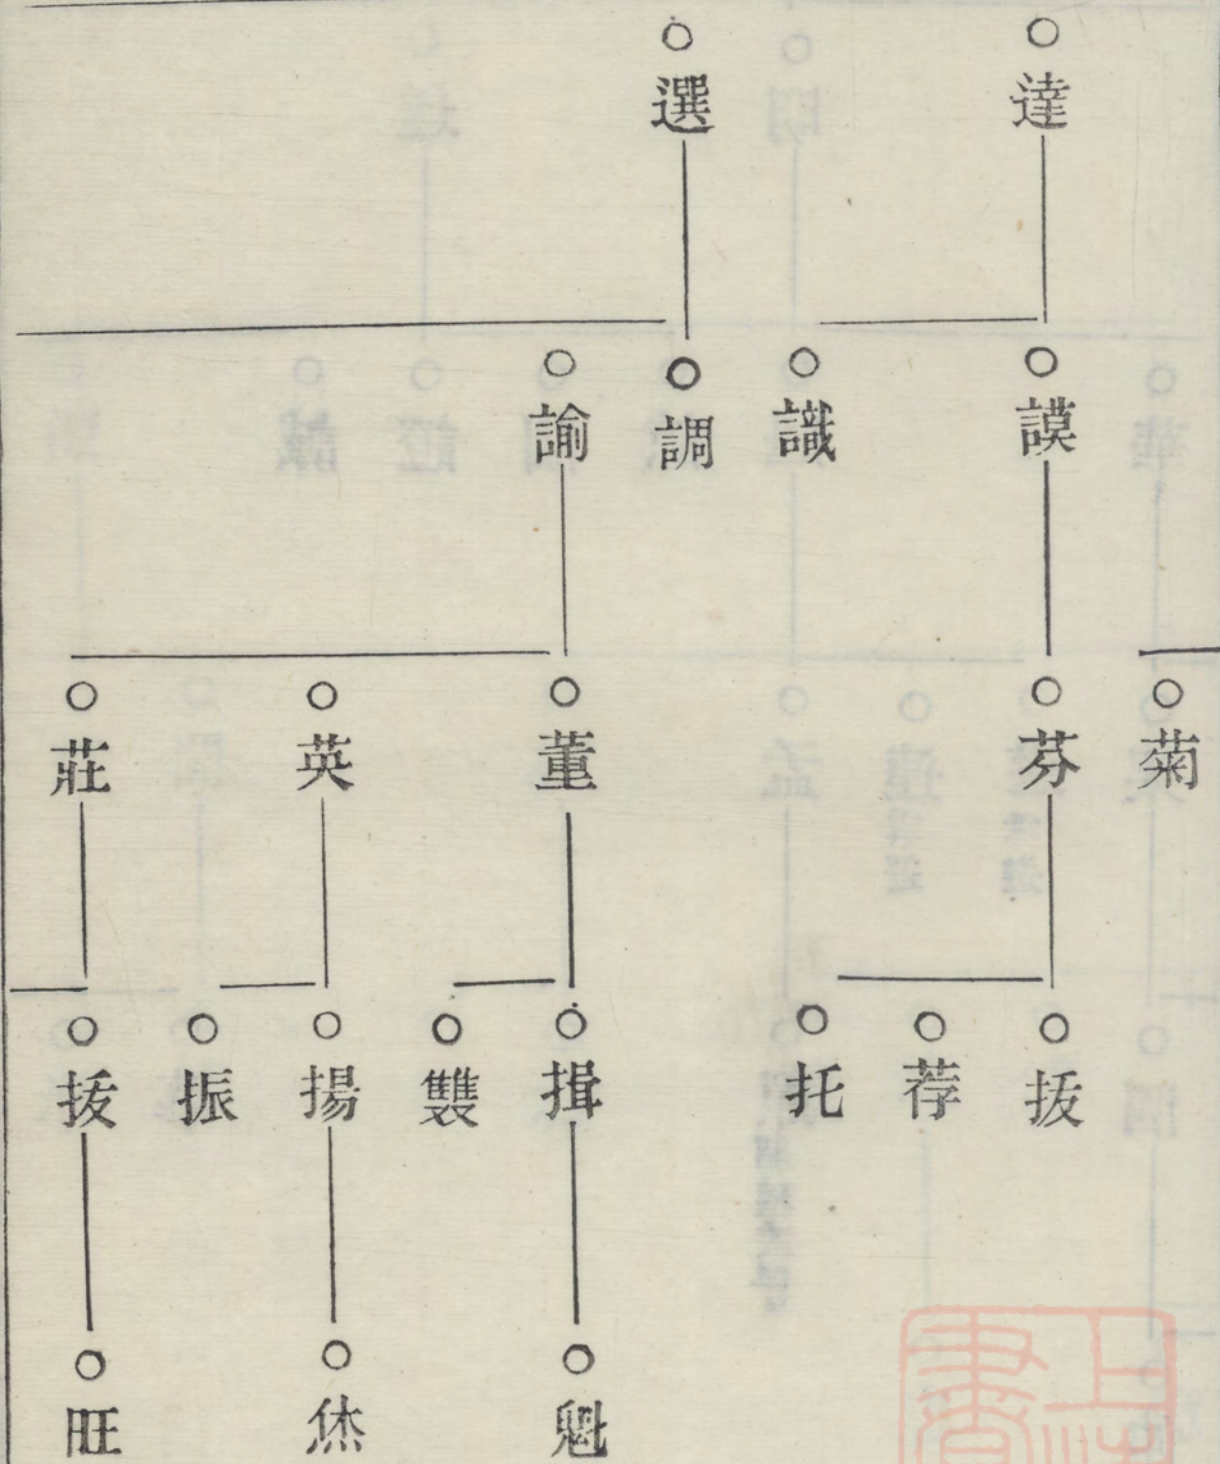 ○達 ○選
○謨 ○識 ○調 ○諭
○菊 ○芬 ○董 ○英 ○莊
○㧞 ○荐 ○托 ○揖 ○雙 ○揚 ○振 ○㧞
○魁 ○烋 ○旺